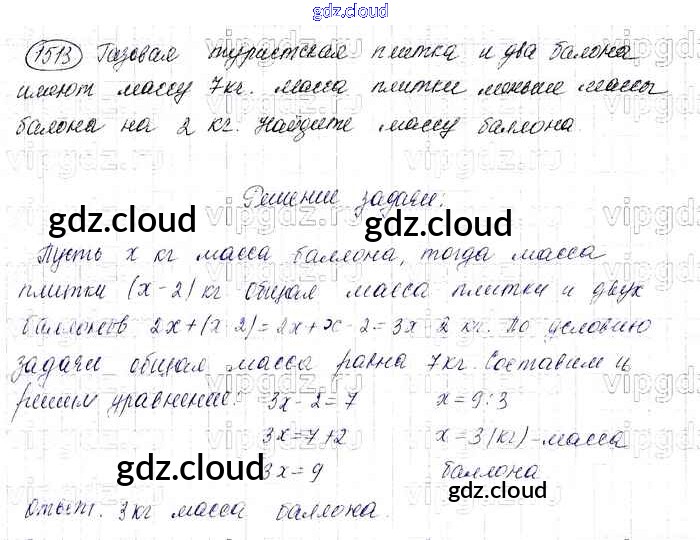 gdz.cloud
1513 Газовая туристская плитка и два балона
имеют массу 7кг. масса плитки меньше массы
балона на 2 кг. Найдите массу баллона.
Решение задачи:
gdz.cloud
gdz.cloud
Пусть x кг масса баллона, тогда масса
плитки (x-2) кг общая масса плитки и двух
баллонов 2x+(x-2)=2x+x-2=3x-2 кг. По условию
задачи общая масса равна 7кг. Составим и
решим уравнение: 3x-2=7 x=9:3
3x=7+2 x=3(кг)-масса
gdz.cloud 3x=9 баллона
gdz.cloud
Ответ. 3 кг масса баллона.